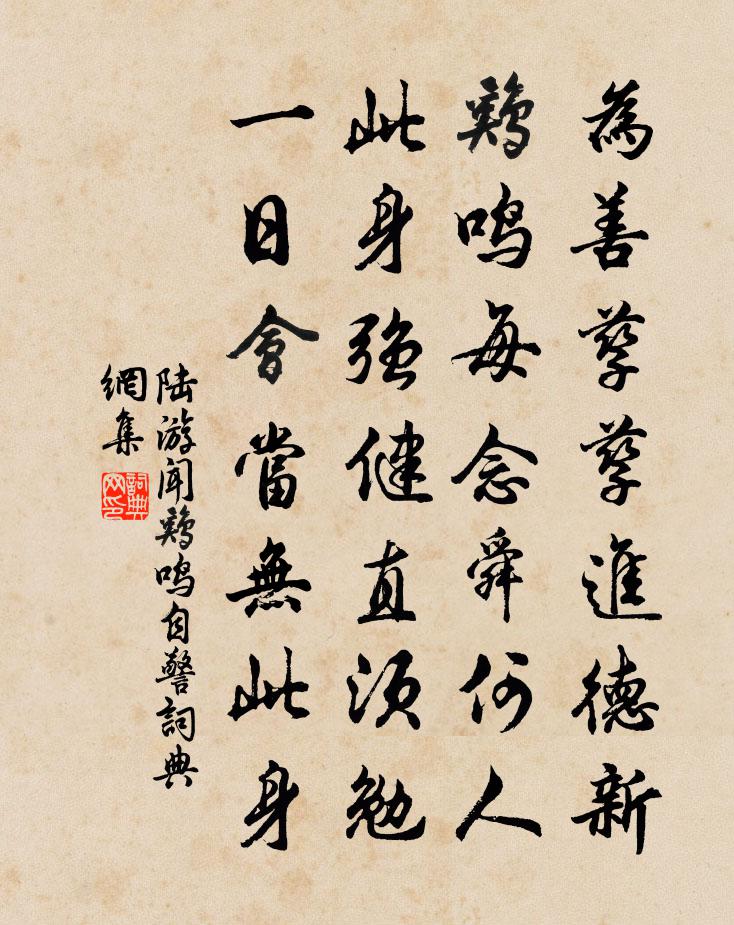 為善孳孳進德新
鷄鳴每念舜何人
此身強健直須勉
一日會當無此身
陆游闻鷄鳴自警詞典
網集
詞典
网印